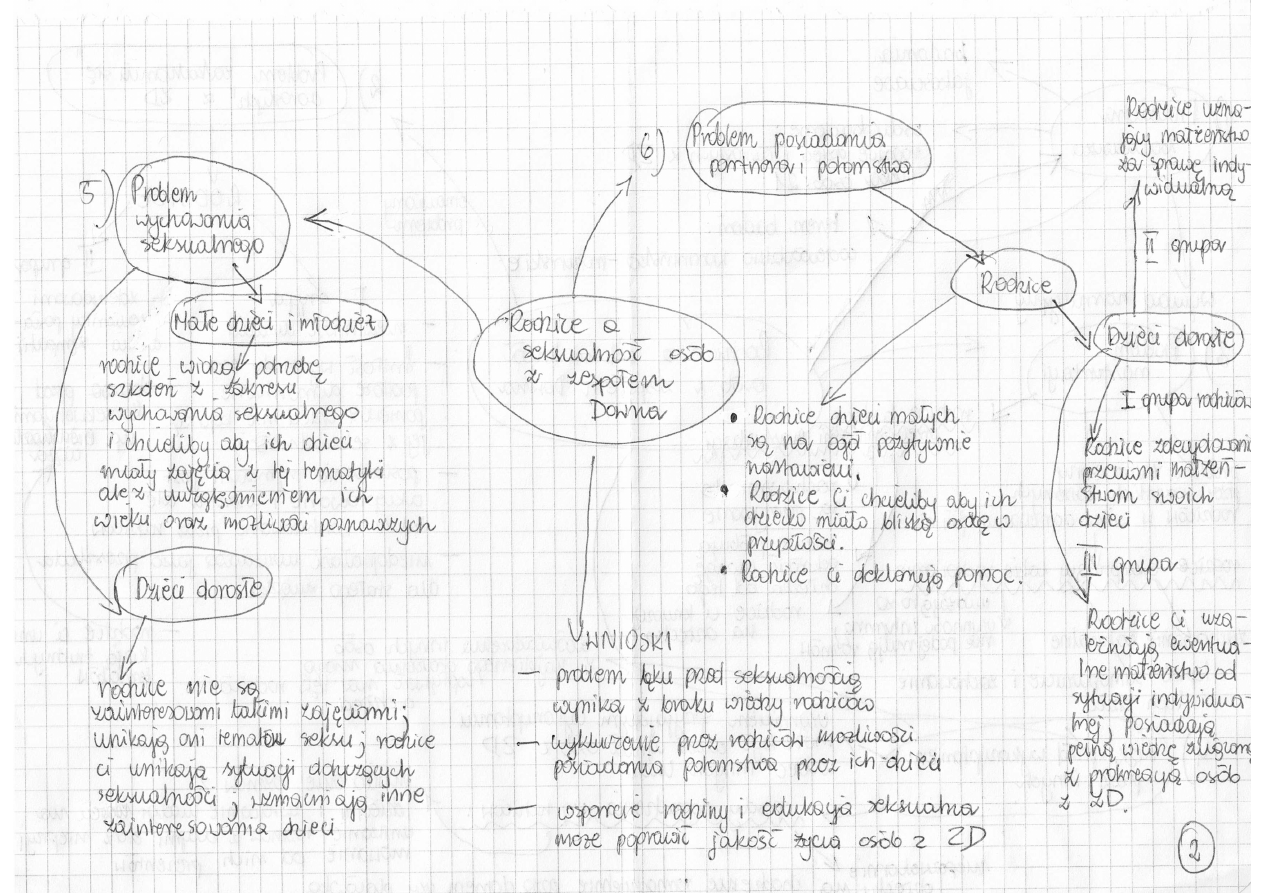 5) Problem
wychowania
seksualnego
Małe dzieci i młodzież
rodzice widzą potrzebę
szkoleń z zakresu
wychowania seksualnego
i chcieliby aby ich dzieci
miały zajęcia z tej tematyki
ale z uwzględnieniem ich
wieku oraz możliwości poznawczych
Dzieci dorosłe
rodzice nie są
zainteresowani takimi zajęciami;
unikają oni tematów seksu; rodzice
ci unikają sytuacji dotyczących
seksualności; wzmacniają inne
zainteresowania dzieci
Rodzice a
seksualność osób
z zespołem
Downa
WNIOSKI
— problem lęku przed seksualnością
wynika z braku wiedzy rodziców
— wykluczenie przez rodziców możliwości
posiadania potomstwa przez ich dzieci
— wsparcie rodziny i edukacja seksualna
może poprawić jakość życia osób z ZD
6) Problem posiadania
partnera i potomstwa
Rodzice
• Rodzice dzieci małych
są na ogół pozytywnie
nastawieni.
• Rodzice Ci chcieliby aby ich
dziecko miało bliską osobę w
przyszłości.
• Rodzice ci deklarują pomoc.
Dzieci dorosłe
Rodzice uzna-
jący małżeństwo
za sprawę indy-
widualną
II grupa
I grupa rodziców
Rodzice zdecydowanie
przeciwni małżeń-
stwom swoich
dzieci
III grupa
Rodzice Ci uza-
leżniają ewentua-
lne małżeństwo od
sytuacji indywidua-
lnej, posiadają
pełną wiedzę związaną
z prokreacją osób
z ZD.
2